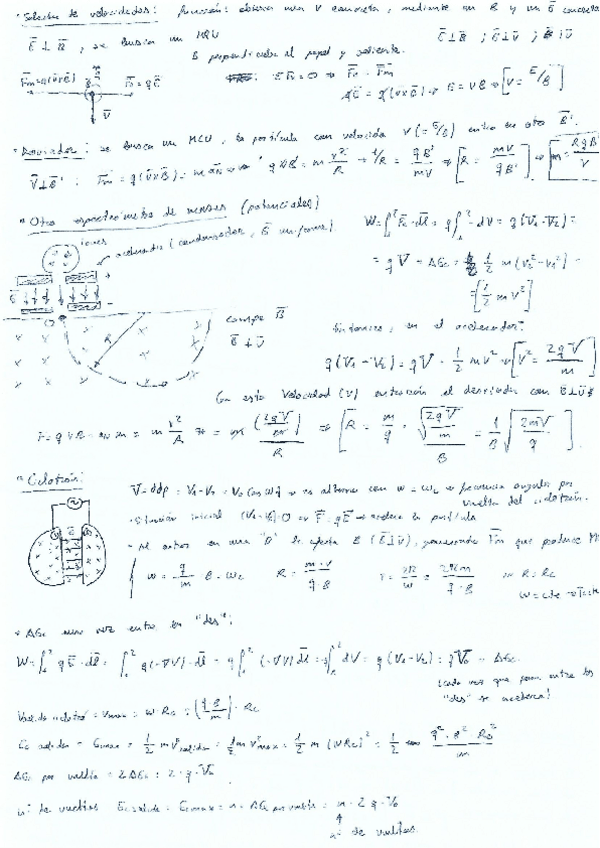 " Selector de velocidades: función: obtener una V concreta, mediante un B y un E concreto
E⊥B, se busca un MRU E⊥B ; E⊥V ; B⊥V
B perpendicular al papel y saliente.
Fm=q(V×B) Fe = qE ΣF=0 ⇒ Fe = Fm
V qE = q(V×B) ⇒ E = VB ⇒ [V = E/B]
" Desviador: se busca un MCU, la partícula con velocidad V (=E/B) entra en otro B'.
V⊥B' : Fm = q(V×B') = m an ⇒ qVB' = m V²/R ⇒ 1/R = qB'/mV ⇒ [R = mV/qB'] ⇒ [m = RqB'/V]
" Otro espectrómetro de masas (potenciales)
iones
acelerador (condensador, E uniforme)
W = ∫ Fe·dl = q∫ -dV = q(V1-V2) =
= qV = ΔEc = 1/2 m(v2²-v1²) =
= [1/2 mV²]
campo B
E⊥V
R
Entonces, en el acelerador:
q(V1-V2) = qV = 1/2 mv² ⇒ [V² = 2qV/m]
Con esta velocidad (V) entra en el desviador con B⊥V y
F = qVB = m V²/R = m (2qV/m)/R ⇒ [R = m/q · √(2qV/m)/B = 1/B √(2mV/q)]
" Ciclotrón:
V = ddp = V1-V2 = V0 cos wt ⇒ es alterna con w = wc ⇒ frecuencia angular por
vuelta del ciclotrón.
· Situación inicial (V1-V2)=0 ⇒ F = qE ⇒ acelera la partícula
· Al entrar en una "D" le afecta B (B⊥V), generando Fm que produce M
w = q/m B = wc R = m·v/q·B T = 2π/w = 2πm/q·B ⇒ R = Rc
w = cte ⇒ T = cte
" ΔEc una vez entre las "des":
W = ∫ qE·dl = ∫ q(-∇V)·dl = q∫ (-∇V)dl = q∫ dV = q(V1-V2) = qV0 = ΔEc
(cada vez que pasa entre las
"des" se acelera)
Vsalida = Vmax = w·Rc = (qB/m)·Rc
Ec salida = Ecmax = 1/2 mV²salida = 1/2 mV²max = 1/2 m (wRc)² = 1/2 q²·B²·Rc²/m
ΔEc por vuelta = 2ΔEc = 2·q·V0
nº de vueltas Ec salida = Ecmax = n·ΔEc por vuelta = n·2q·V0
nº de vueltas